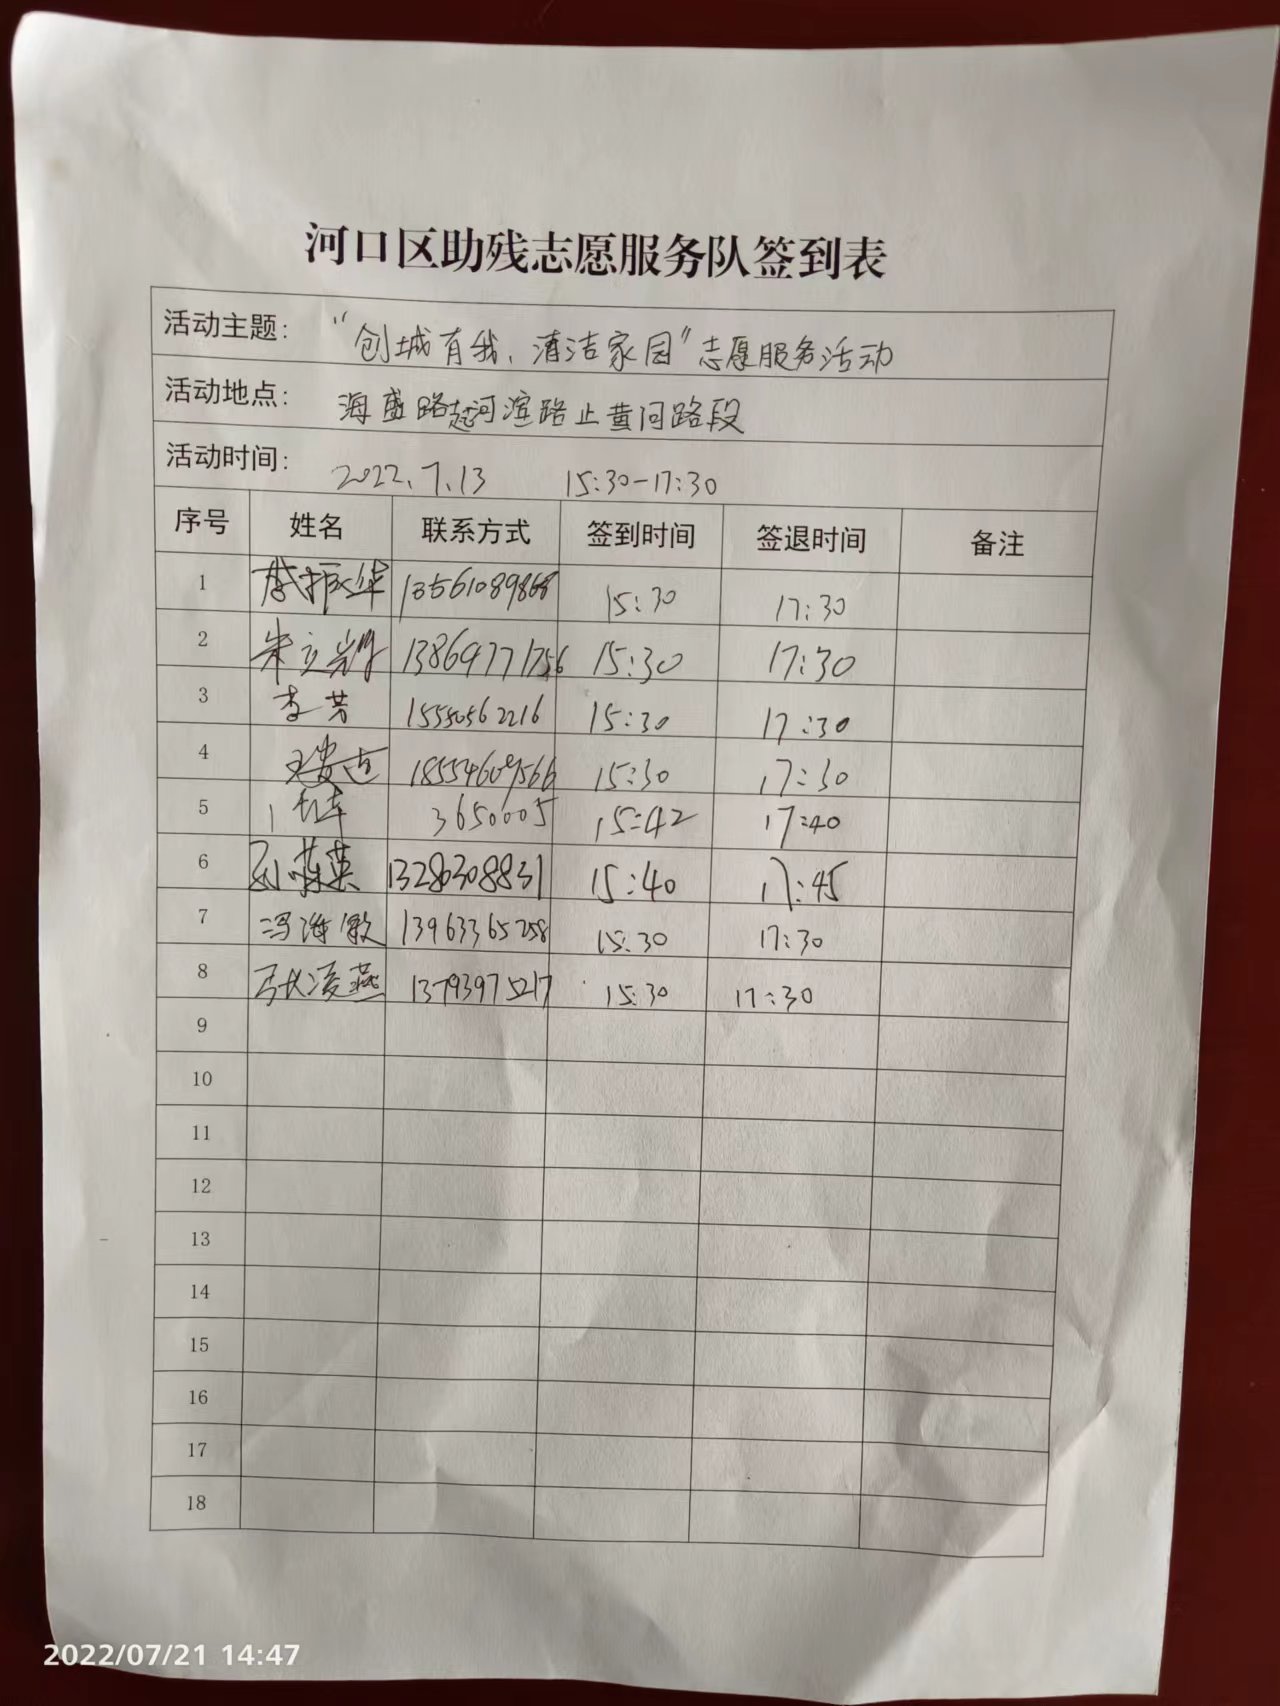 河口区助残志愿服务队签到表
活动主题: “创城有我、清洁家园”志愿服务活动
活动地点: 海盛路起河滨路止黄河路段
活动时间: 2022.7.13 15:30-17:30
序号 姓名 联系方式 签到时间 签退时间 备注
1 13561089868 15:30 17:30
2 朱立岩 13869771756 15:30 17:30
3 李芳 15550562216 15:30 17:30
4 18554609566 15:30 17:30
5 3650005 15:42 17:40
6 13280308831 15:40 17:45
7 冯海敏 13963365258 15:30 17:30
8 张凌燕 13793975217 15:30 17:30
9
10
11
12
13
14
15
16
17
18
2022/07/21 14:47